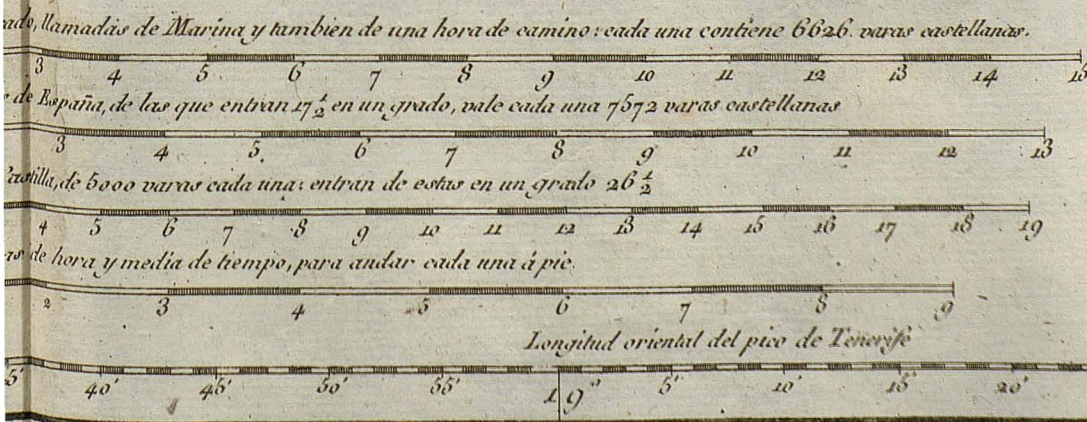 ado, llamadas de Marina y tambien de una hora de camino: cada una contiene 6626. varas castellanas.
3 4 5 6 7 8 9 10 11 12 13 14 15
de España, de las que entran 17 1/2 en un grado, vale cada una 7572 varas castellanas
3 4 5 6 7 8 9 10 11 12 13
Castilla, de 5000 varas cada una: entran de estas en un grado 26 1/2
4 5 6 7 8 9 10 11 12 13 14 15 16 17 18 19
as de hora y media de tiempo, para andar cada una á pie.
2 3 4 5 6 7 8 9
Longitud oriental del pico de Tenerife
5' 40' 45' 50' 55' 19° 5' 10' 15' 20'